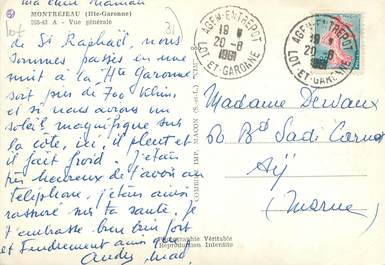 ma chère Maman
MONTRÉJEAU (Hte-Garonne)
A - Vue générale
de St Raphaël, nous
sommes passés en une
nuit à la Hte Garonne
soit près de 700 Klm,
et si nous avions un
soleil magnifique sur
la côte, ici, il pleut et
il fait froid. J'étais
très heureux de t'avoir au
téléphone, j'étais ainsi
rassuré sur ta santé. Je
t'embrasse bien bien fort
et tendrement ainsi que
AGEN-ENTREPOT
19 H
20-8
1961
LOT-ET-GARONNE
AGEN-ENTREPOT
19 H
20-8
1961
LOT-ET-GARONNE
Madame Devaux
60 Bd Sadi Carnot
Aÿ
(Marne)
COMBIER IMP. MACON (S.-et-L.) "CIM"
Photographie Véritable
Reproduction Interdite